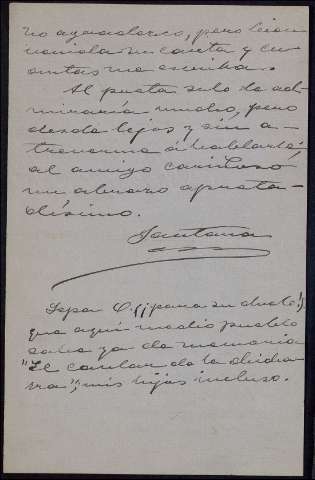 no agradezco, pero
su carta y cu
antas me escriba.
Al poeta solo le ad-
miraría mucho, pero
desde lejos y sin a-
treverme á hablarle;
al amigo cariñoso
un abrazo apreta-
dísimo.
Santana
Sepa V. (¡para su duelo!)
que aquí medio pueblo
sabe ya de memoria
"El cantar de la
mis hijas incluso.